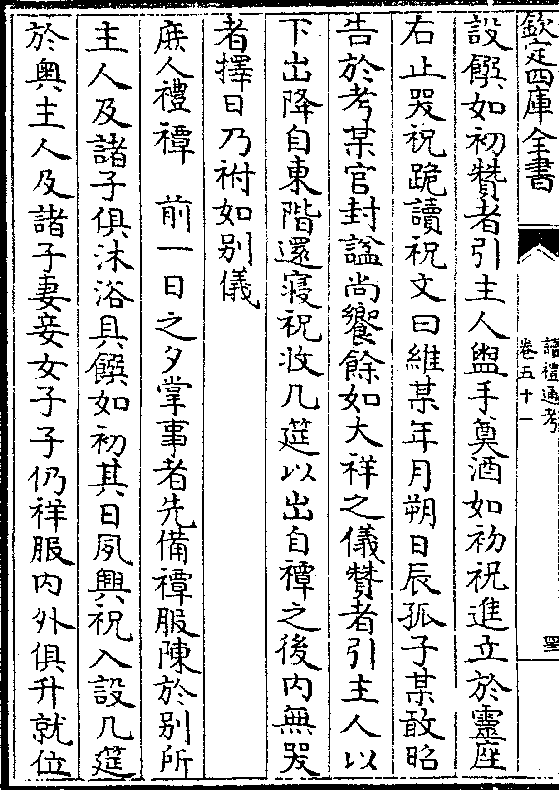 欽定四庫全書
讀禮通考
卷五十一
設饌如初贊者引主人盥手奠酒如初祝進立於靈座
右止哭祝跪讀祝文曰維某年月朔日辰孤子某敢昭
告於考某官封諡尚饗餘如大祥之儀贊者引主人以
下出降自東階還寢祝收几筵以出自禫之後内無哭
者擇日乃祔如别儀
庶人禮禫　前一日之夕掌事者先備禫服陳於别所
主人及諸子俱沐浴具饌如初其日夙興祝入設几筵
於奥主人及諸子妻妾女子子仍祥服内外俱升就位